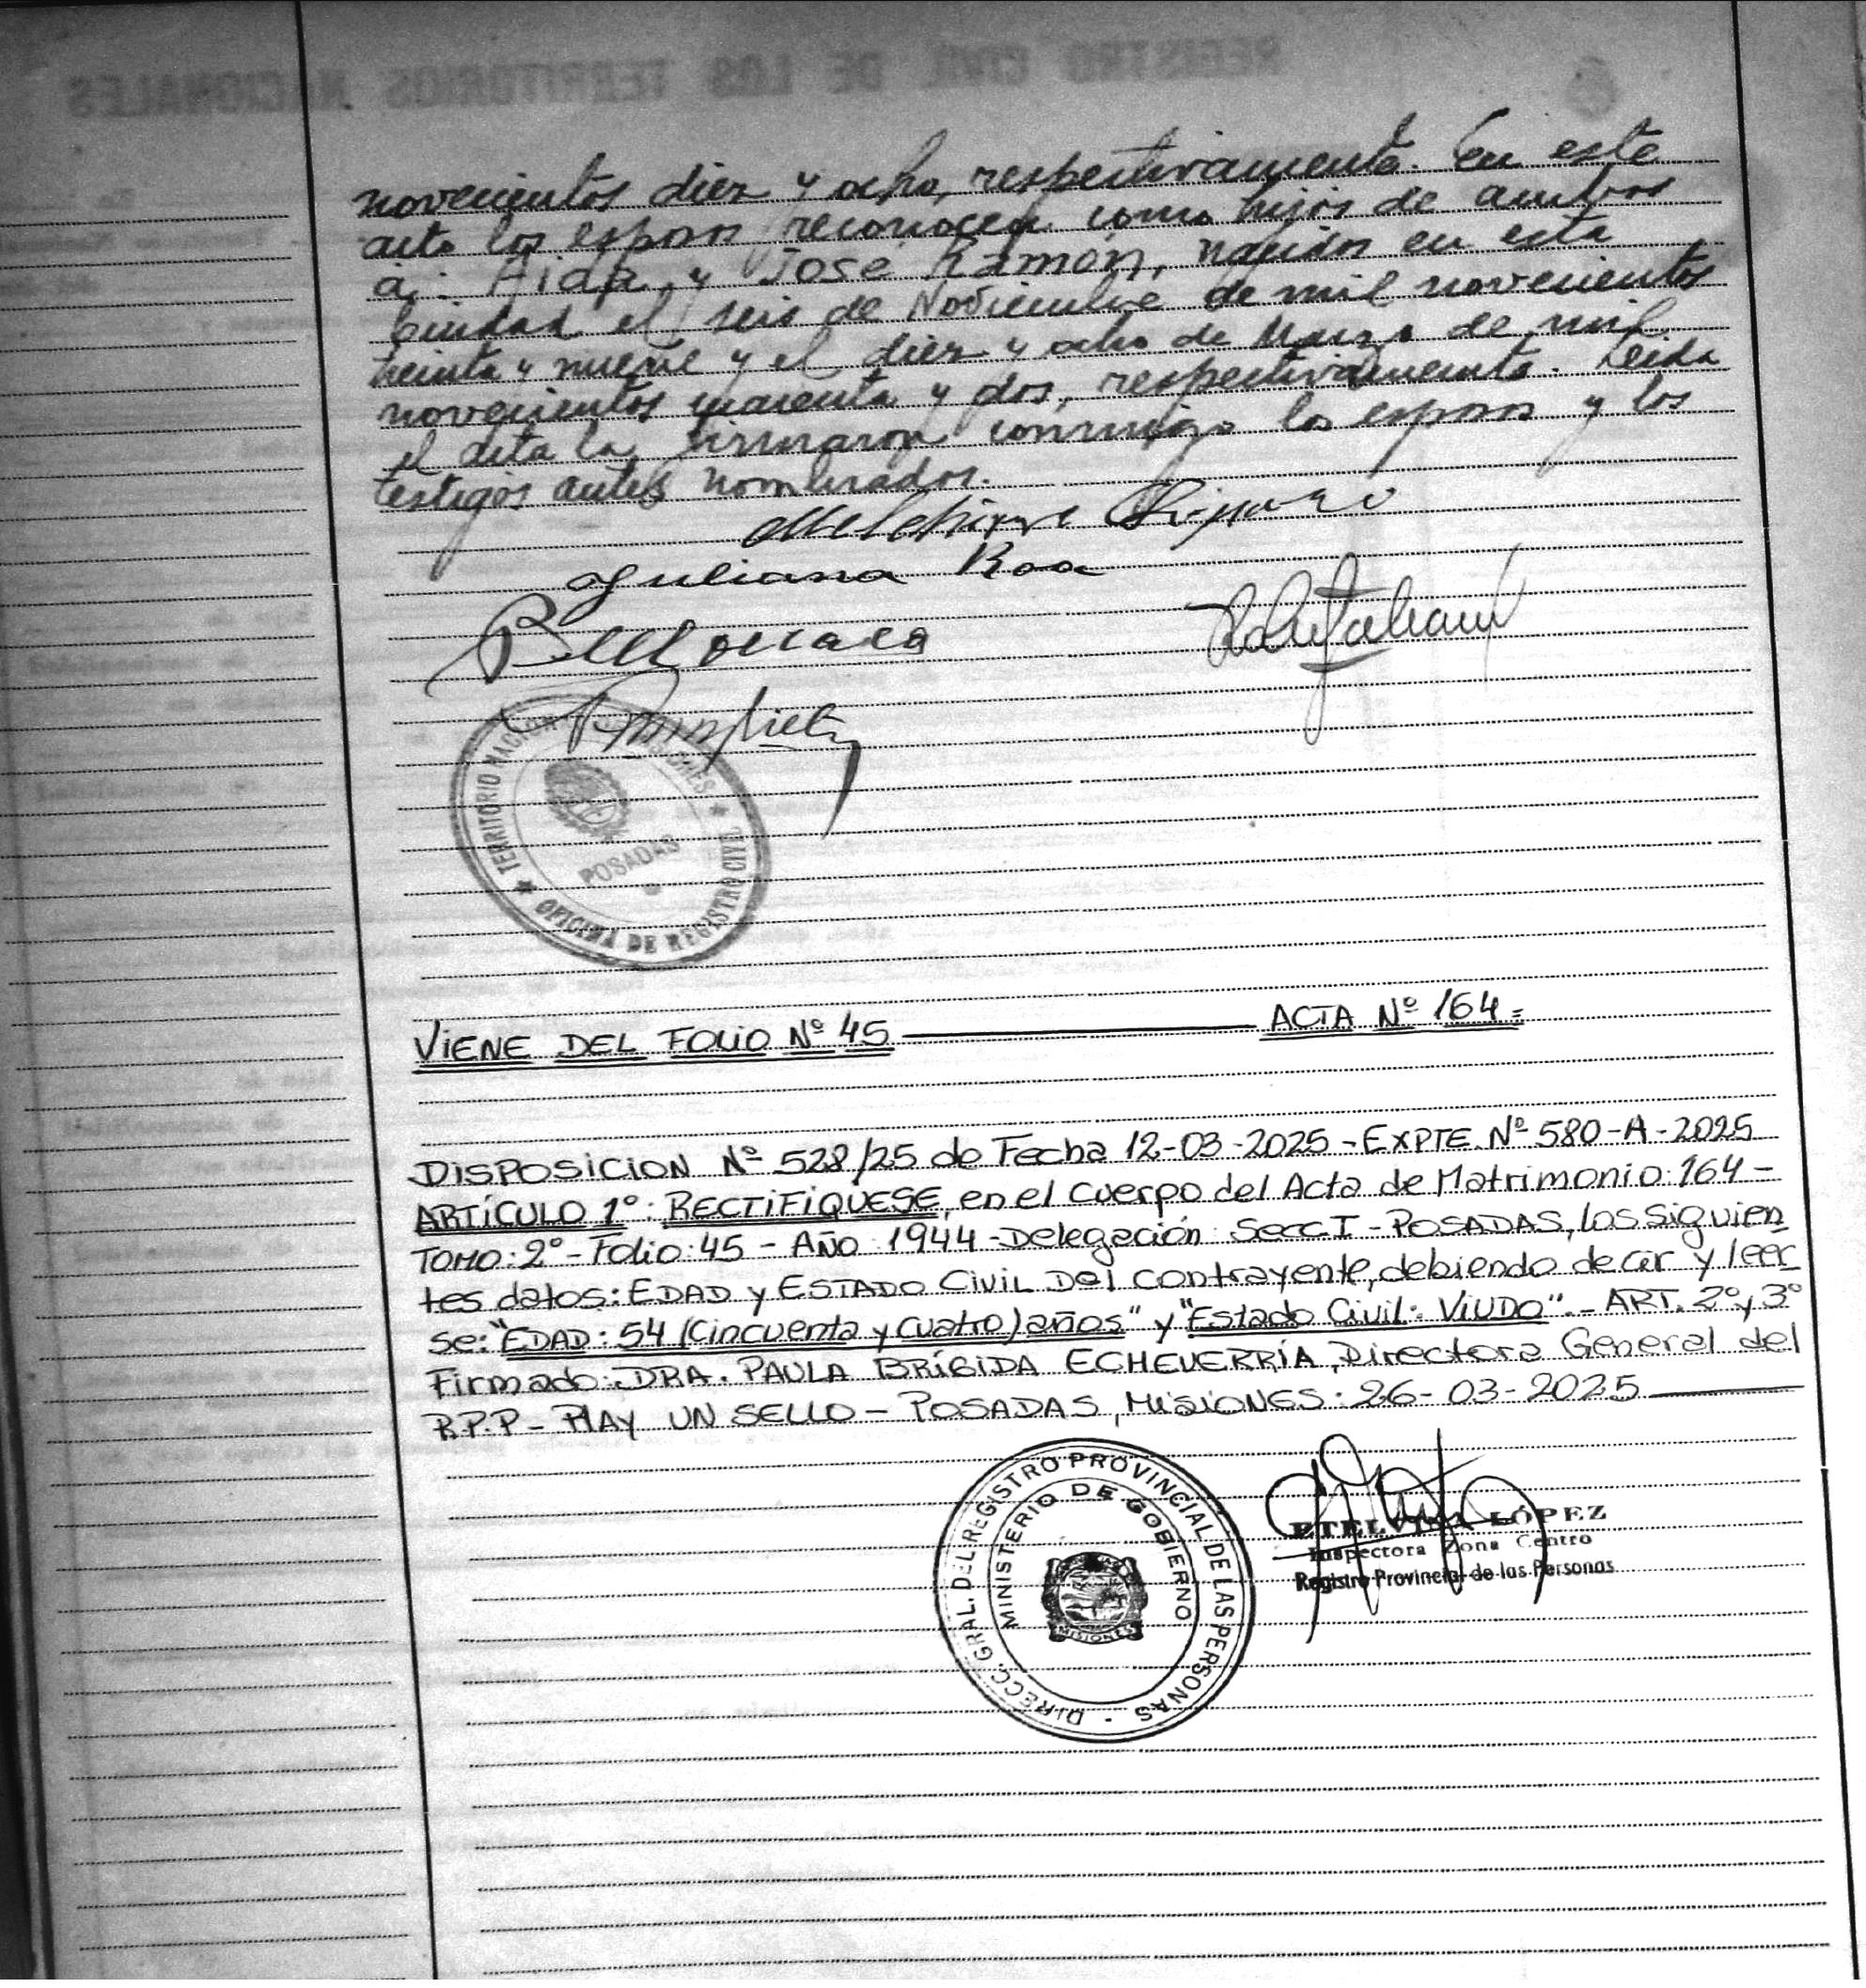 REGISTRO CIVIL DE LOS TERRITORIOS NACIONALES
novecientos diez y ocho, respectivamente. En este
acto los esposos reconocen como hijos de ambos
a: Aida y José Ramón, nacidos en esta
Ciudad el seis de Noviembre de mil novecientos
treinta y nueve y el diez y ocho de Marzo de mil
novecientos cuarenta y dos, respectivamente. Leida
el acta la firmaron conmigo los esposos y los
testigos antes nombrados.
Juliana Roa
TERRITORIO NACIONAL DE MISIONES
POSADAS
OFICINA DE REGISTRO CIVIL
VIENE DEL FOLIO Nº 45 ACTA Nº 164=
DISPOSICION Nº 528/25 de Fecha 12-03-2025-EXPTE. Nº 580-A-2025
ARTÍCULO 1º: RECTIFIQUESE, en el cuerpo del Acta de Matrimonio: 164-
TOMO: 2º-Folio: 45 - AÑO: 1944-Delegación: Secc. I-POSADAS, los siguien
tes datos: EDAD y ESTADO Civil Del contrayente, debiendo decir y leer
se: "EDAD: 54 (Cincuenta y cuatro) años" y "Estado Civil: VIUDO".- ART. 2º y 3º
Firmado: DRA. PAULA BRÍGIDA ECHEVERRÍA, Directora General del
R.P.P- HAY UN SELLO - POSADAS, MISIONES: 26-03-2025
DIRECC. GRAL. DEL REGISTRO PROVINCIAL DE LAS PERSONAS
MINISTERIO DE GOBIERNO
MISIONES
ETELVINA LÓPEZ
Inspectora Zona Centro
Registro Provincial de las Personas